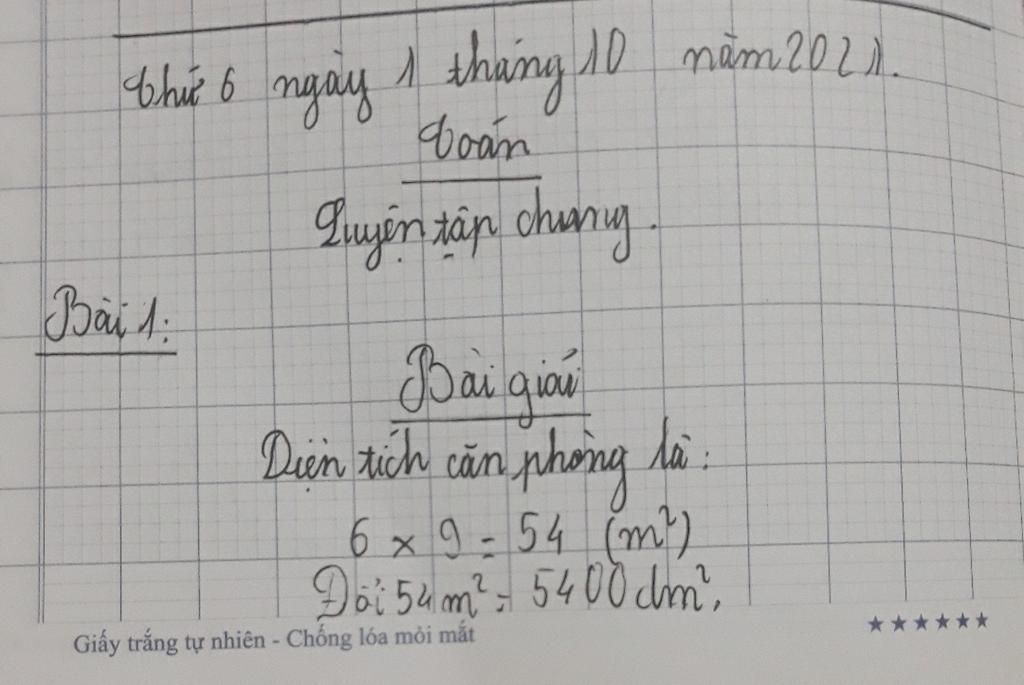 Thứ 6 ngày 1 tháng 10 năm 2021.
Toán
Luyện tập chung.
Bài 1:
Bài giải
Diện tích căn phòng là:
6 x 9 = 54 (m²)
Đổi 54 m² = 5400 dm².
Giấy trắng tự nhiên - Chống lóa mỏi mắt
★★★★★★